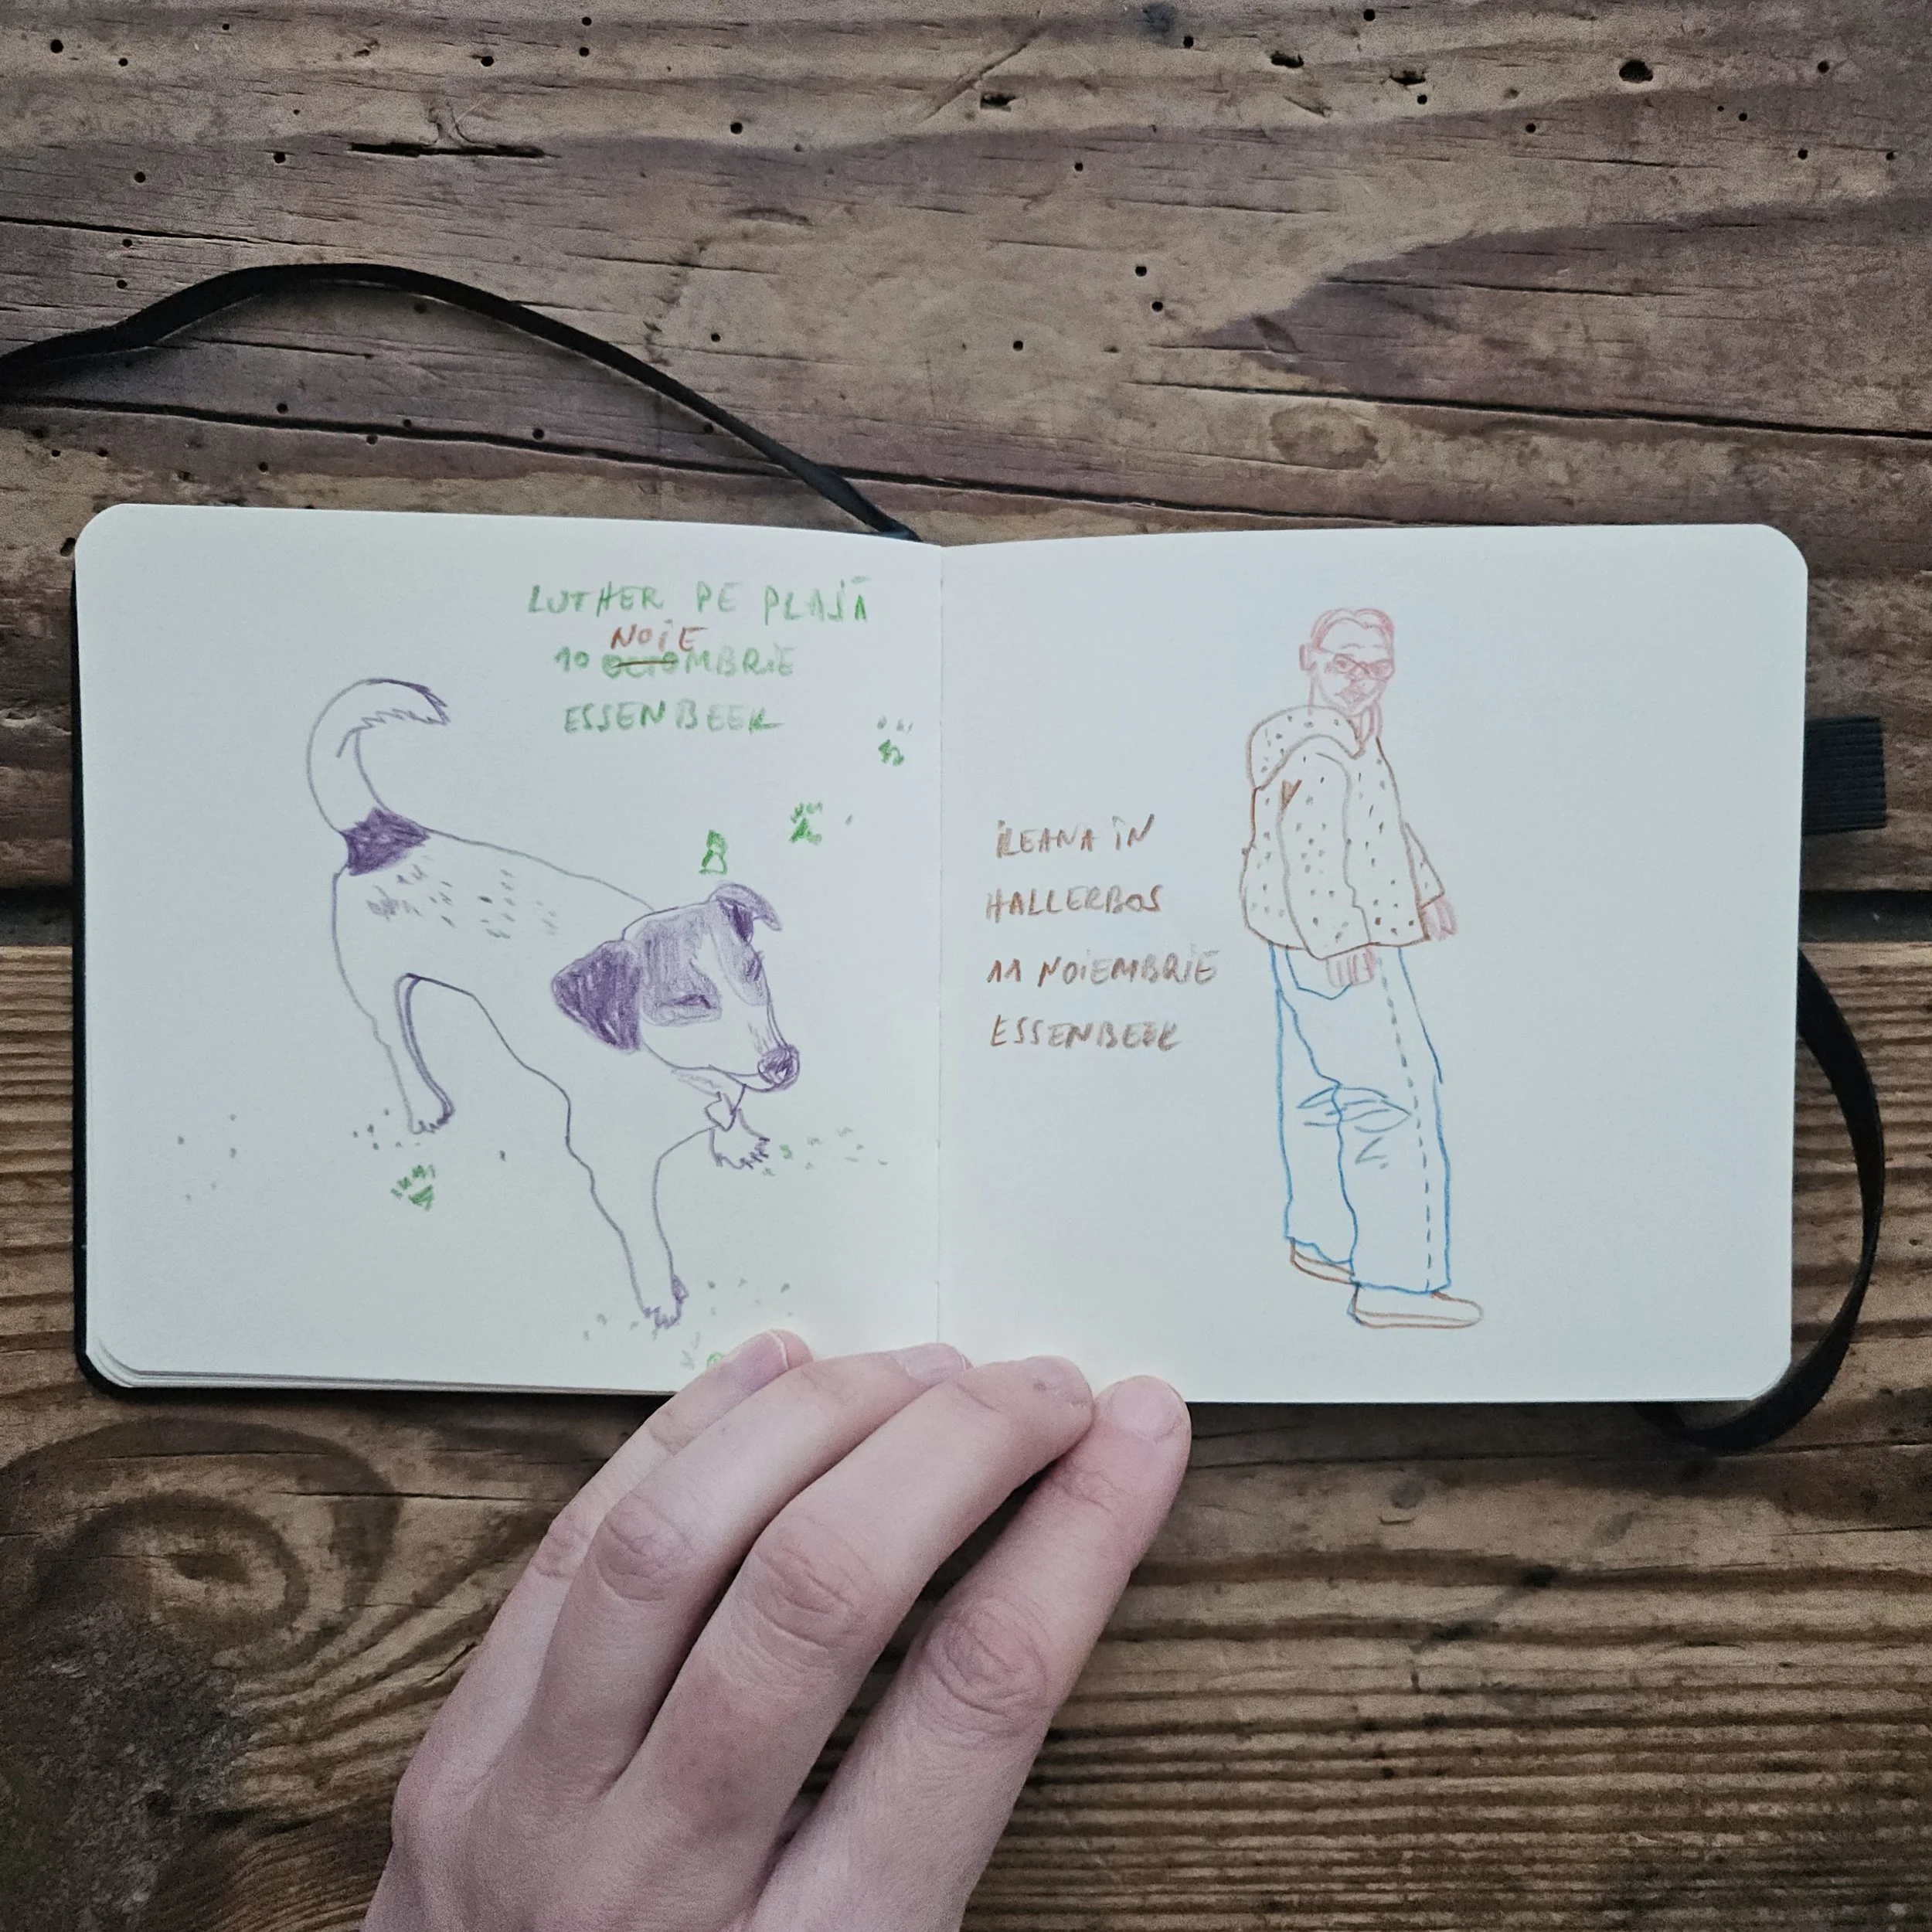 LUTHER PE PLAJĂ
NOIE
10 OCTOMBRIE
ESSENBEEK
ILEANA ÎN
HALLERBOS
11 NOIEMBRIE
ESSENBEEK